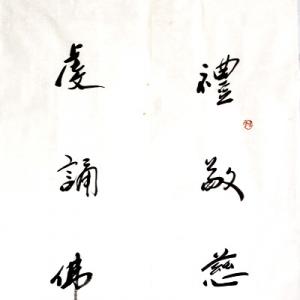 禮敬慈
虔誦佛